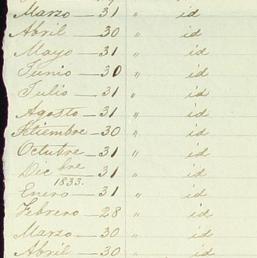 Marzo — 31 " id
Abril — 30 " id
Mayo — 31 " id
Junio — 30 " id
Julio — 31 " id
Agosto — 31 " id
Setiembre — 30 " id
Octubre — 31 " id
Decbre — 31 " id
1833.
Enero — 31 " id
Febrero — 28 " id
Marzo — 30 " id
Abril — 30 " id